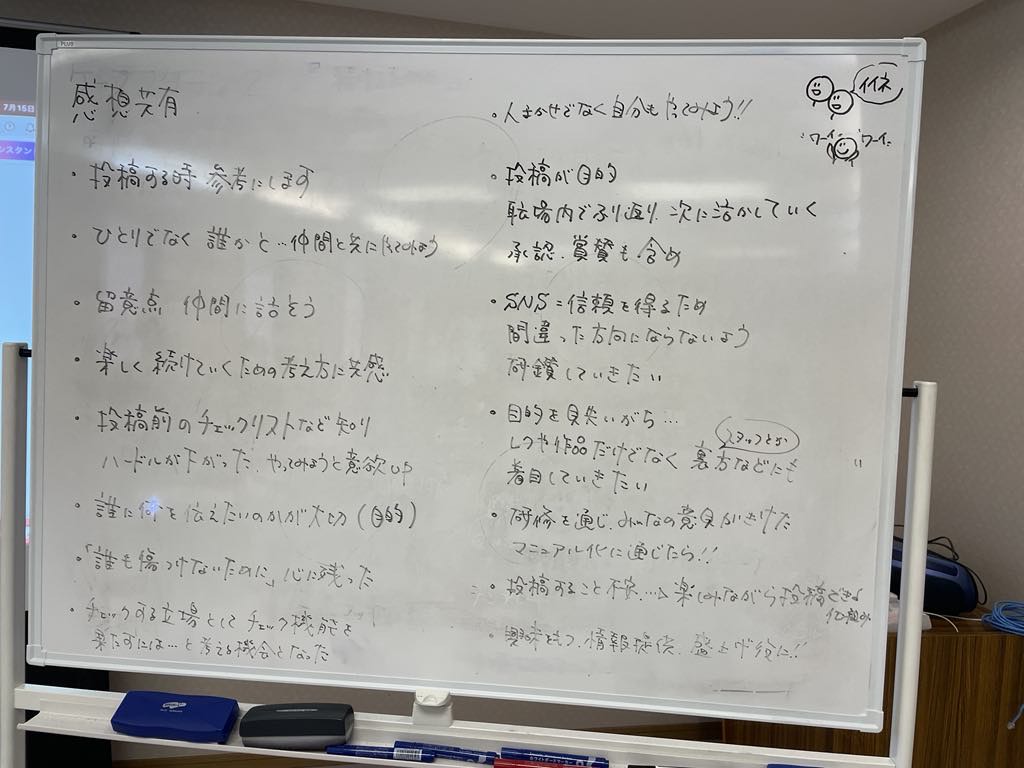 PLUS
7月15日
感想共有
・投稿する時 参考にします
・ひとりでなく 誰かと…仲間と共に やってみよう
・留意点 仲間に話そう
・楽しく続けていくための考え方に共感
・投稿前のチェックリストなど知り
ハードルが下がった、やってみようと意欲UP
・誰に何を伝えたいのかが大切(目的)
・「誰も傷つけないために」心に残った
・チェックする立場としてチェック機能を
果たすには…と考える機会となった
・人まかせでなく自分もやってみよう!!
・投稿が目的
職場内でふり返り 次に活かしていく
承認、賞賛も含め
・SNS=信頼を得るため
間違った方向にならないよう
研鑽していきたい
・目的を見失いがち…
スタッフとか
レクや作品だけでなく 裏方などにも
着目していきたい
・研修を通じ、みんなの意見がきけた
マニュアル化に通じたら!!
・投稿すること 不安…→楽しみながら投稿できる
・興味をもつ、情報提供、
イイネ
ワーイ ワーイ